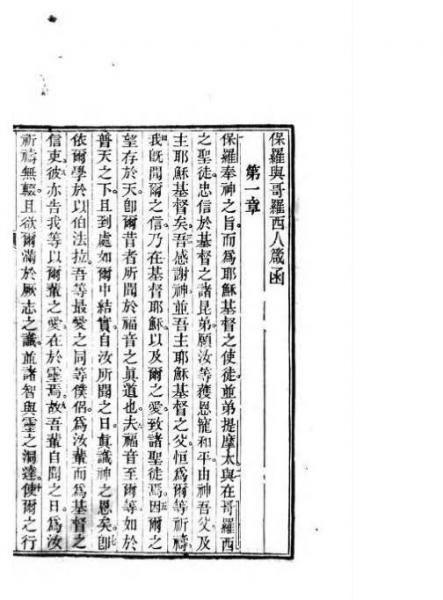 保羅與哥羅西人箴函
第一章
保羅奉神之旨而為耶穌基督之使徒並弟提摩太與在哥羅西
之聖徒忠信於基督之諸昆弟願汝等獲恩寵和平由神吾父及
主耶穌基督矣吾感謝神並吾主耶穌基督之父恒為爾等祈禱
我既聞爾之信乃在基督耶穌以及爾之愛致諸聖徒焉因爾之
望存於天即爾昔者所聞於福音之真道也夫福音至爾等如於
普天之下且到處如爾中結實自汝所聞之日真識神之恩矣即
依爾學於以伯法拉吾等最愛之同等僕侶為汝輩而為基督之
信吏彼亦告我等以爾輩之愛在於靈焉故吾輩自聞之日為汝
祈禱無輟且欲爾滿於厥志之識並諸智與靈之洞達使爾之行